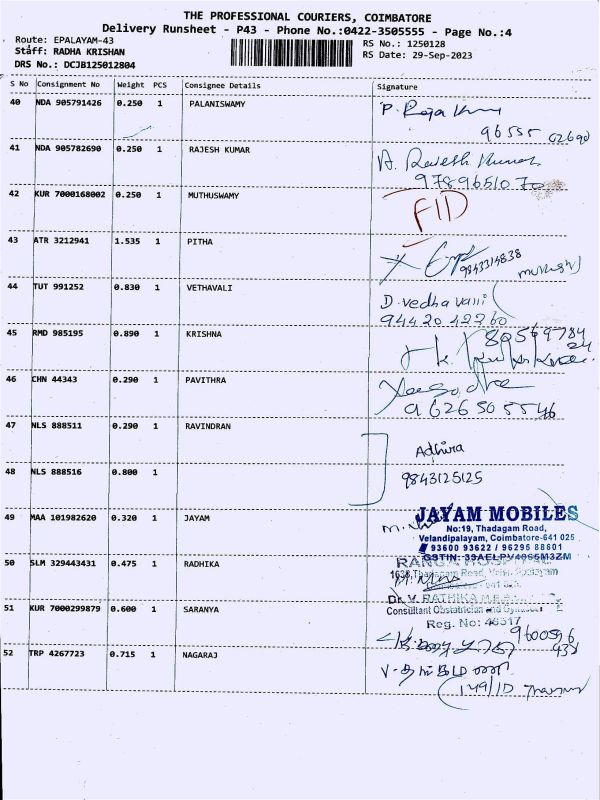 THE PROFESSIONAL COURIERS, COIMBATORE
Delivery Runsheet - P43 - Phone No.:0422-3505555 - Page No.:4
Route: EPALAYAM-43
RS No.: 1250128
Staff: RADHA KRISHAN
RS Date: 29-Sep-2023
DRS No.: DCJB125012804
S No Consignment No Weight PCS Consignee Details Signature
40 NDA 905791426 0.250 1 PALANISWAMY P. Raja
96555 02690
41 NDA 905782690 0.250 1 RAJESH KUMAR A. Rajesh Kumar
9789651070
42 KUR 7000168002 0.250 1 MUTHUSWAMY
43 ATR 3212941 1.535 1 PITHA
9843314838
44 TUT 991252 0.830 1 VETHAVALI D. vedha valli
94420 42260
45 RMD 985195 0.890 1 KRISHNA 80569784
24
46 CHN 44343 0.290 1 PAVITHRA Yasodha
9626505546
47 NLS 888511 0.290 1 RAVINDRAN Adhira
48 NLS 888516 0.800 1 9843125125
49 MAA 101982620 0.320 1 JAYAM JAYAM MOBILES
No:19, Thadagam Road,
Velandipalayam, Coimbatore-641 025
93600 93622 / 96295 88601
GSTIN: 33AELPV4066M3ZM
50 SLM 329443431 0.475 1 RADHIKA RANGA HOSPITAL
Thadagam Road,
Dr. V. RATHIKA
Consultant Obstetrician and
Reg. No: 46517
51 KUR 7000299879 0.600 1 SARANYA 9600596
938
52 TRP 4267723 0.715 1 NAGARAJ
149/1D